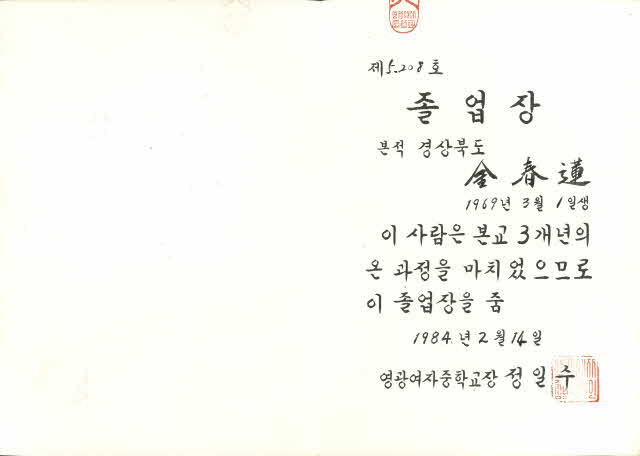 제5.208호
졸업장
본적 경상북도
金春蓮
1969년 3월 1일생
이 사람은 본교 3개년의
온 과정을 마치었으므로
이 졸업장을 줌
1984년 2월 14일
영광여자중학교장 정일수